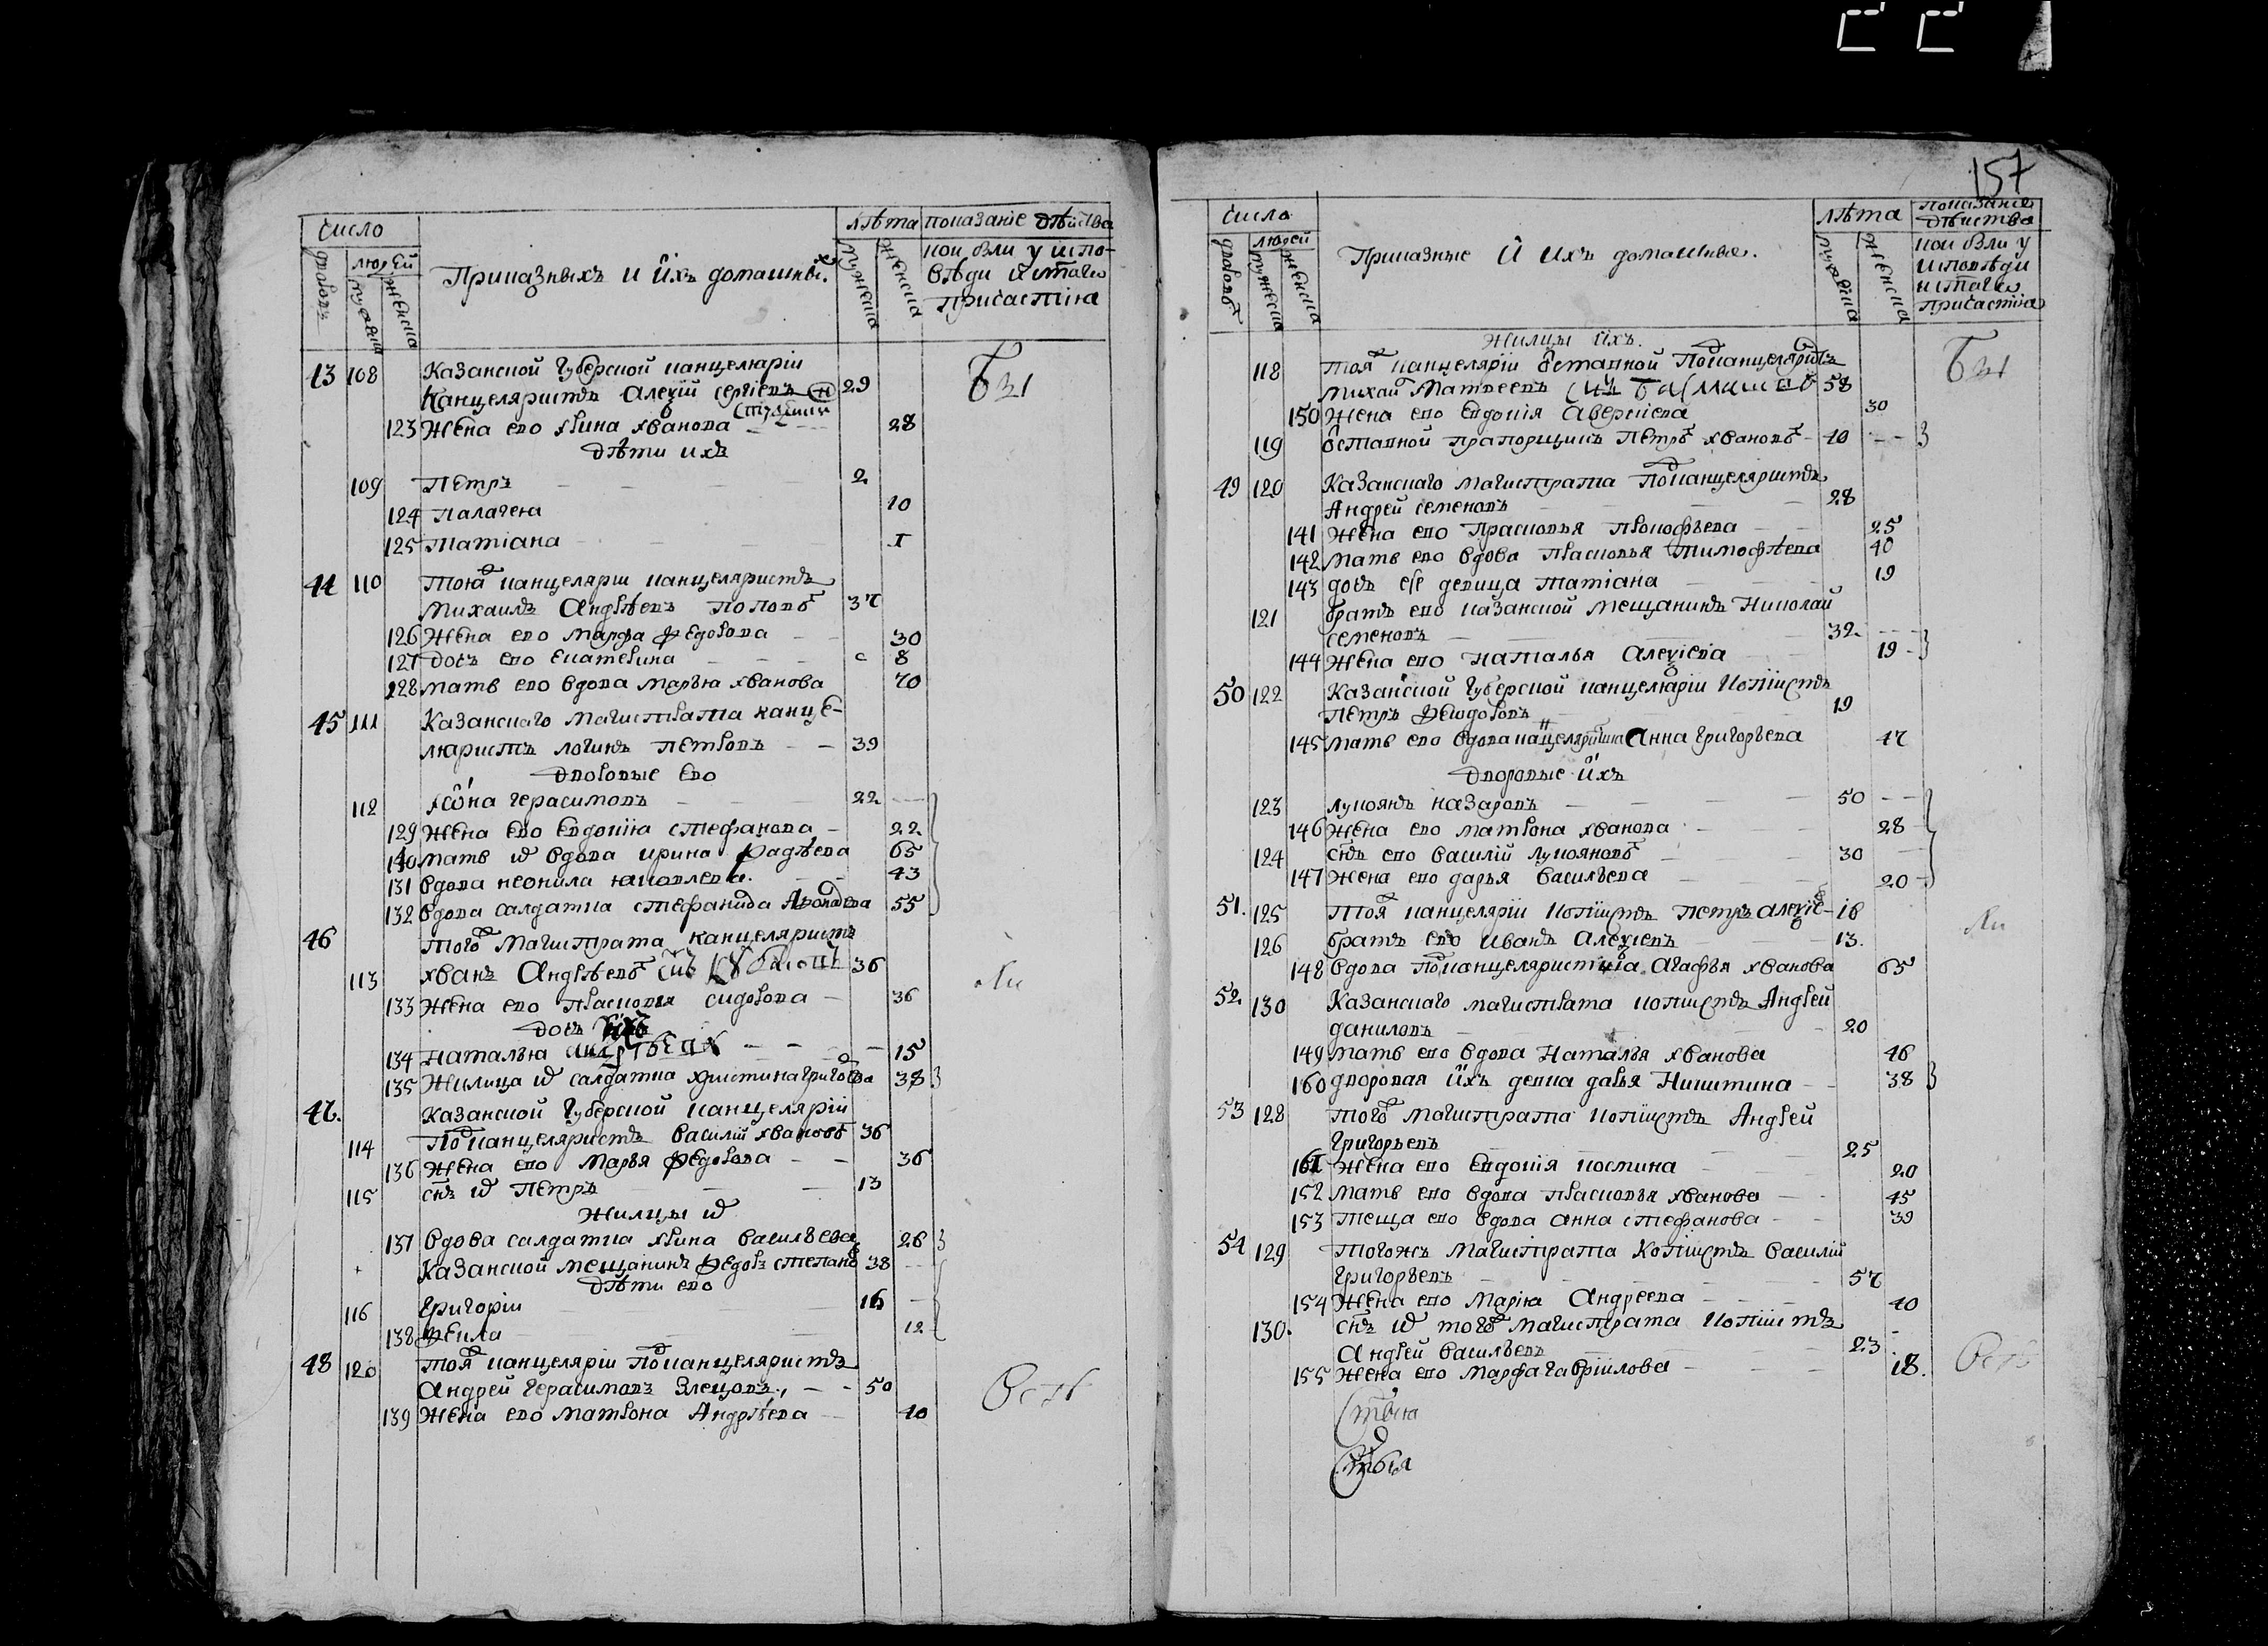 157
число
дворовъ
людей
мужеска
женска
Приказныхъ и ихъ домашних
лѣта
мужеска
женска
показаніе дѣйства
кои были у испо-
вѣди и святаго
причастіа
43 108 Казанской губерской канцеляріи
Канцеляристъ Алеѯій Сергіевъ 29
123 Жена ево Ирина Иванова 28
дѣти ихъ
109 Петръ 2
124 Палагеиа
10
125 Татіана
Бы
44 110 Тояж канцеляріи канцеляристъ
Михаилъ Андрѣевъ Поповъ 37
126 Жена ево Марфа Ѳедорова 30
127 дочь ево Екатерина 8
128 мать ево вдова Марья Иванова 70
45 111 Казанскаго магистрата канце-
ляристъ Логинъ Петровъ 39
дворовые ево
112 Иона Герасимовъ 22
129 Жена ево Евдокия Стефанова 22
130 мать ево вдова Ирина Фадѣева 65
131 вдова Неонила Яковлева 43
132 вдова салдатка Стефанида 55
46 тогож магистрата канцеляристъ
113 Иванъ Андрѣевъ 36
133 Жена ево Прасковья Сидорова 36
дочь
134 Наталья 15
135 Жилица ево салдатка Христина Григорьева 38
47 Казанской губерской канцеляріи
114 Подканцеляристъ Василій Ивановъ 36
136 Жена ево Марья Ѳедорова 36
115 сынъ ево Петръ 13
Жилцы ево
137 вдова салдатка Ирина Васильева 26
Казанской мещанинъ Ѳедоръ Степановъ 38
дѣти ево
116 Григоріи 16
138 Ѳекла 12
48 120 тояж канцеляріи Подканцеляристъ
Андрей Герасимовъ 50
139 Жена ево Матрона Андрѣева 40
число
дворовъ
людей
мужеска
женска
Приказные и ихъ домашные
лѣта
мужеска
женска
показание
дѣиства
кои были у
исповѣди
и святаго
причастіа
Жилцы ихъ
118 тояж канцеляріи отставной Подканцеляристъ
Михайл Матвеевъ 58
150 Жена ево Евдокія Аверкиева 30
119 отставной прапорщикъ Петръ Ивановъ 40
Бы
49 120 Казанскаго магистрата Подканцеляристъ
Андрей Семеновъ 28
141 Жена ево Прасковья Прокофьева 25
142 Мать ево вдова Прасковья Тимофѣева 40
143 дочь ее девица Татіана 19
121 братъ ево казанской мещанинъ Николай
Семеновъ 32
144 Жена ево Наталья Алеѯіева 19
50 122 Казанской губерской канцеляріи копіистъ
Петръ Ѳеодоровъ 19
145 мать ево вдова канцеляристша Анна Григорьева 47
дворовые ихъ
123 Лукоянъ Назаровъ 50
146 Жена ево Матрона Иванова 28
124 сынъ ево Василій Лукояновъ 30
147 Жена ево Дарья Васильева 20
51 125 Тояж канцеляріи копіистъ Петръ Алеѯіевъ 16
126 братъ ево Иванъ Алеѯіевъ 13
148 вдова подканцеляристша Агафья Иванова 65
52 130 Казанскаго магистрата копиистъ Андрей
Даниловъ 20
149 мать ево вдова Наталья Иванова 46
160 дворовая ихъ девка Дарья Никитина 38
53 128 тогож магистрата копіистъ Андрей
Григорьевъ 25
Жена ево Евдокія Космина 20
152 мать ево вдова Прасковья Иванова 45
153 теща ево вдова Анна Стефанова 39
54 129 Тогожъ магистрата Копіистъ Василій
Григорьевъ 57
154 Жена ево Марія Андреева 40
130 сынъ ево тогож магистрата копіистъ
Андрей Васильевъ 23
155 Жена ево Марфа Гавріилова 18